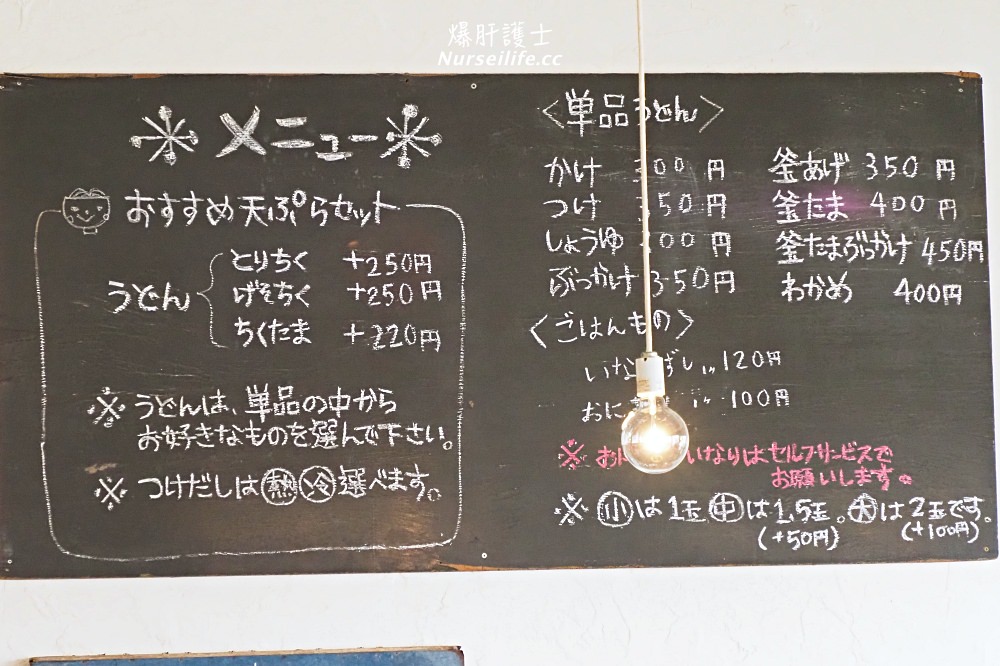 爆肝護士
Nurseilife.cc
メニュー
おすすめ天ぷらセット
うどん
とりちく +250円
げそちく +250円
ちくたま +220円
※うどんは、単品の中から
お好きなものを選んで下さい。
※つけだしは熱冷選べます。
<単品うどん>
かけ 300円
つけ 350円
しょうゆ 00円
ぶっかけ 350円
釜あげ 350円
釜たま 400円
釜たまぶっかけ 450円
わかめ 400円
<ごはんもの>
いな ずし 120円
おに 100円
※ お いなりはセルフサービスで
お願いします。
※小は1玉中は1,5玉。大は2玉です。
(+50円) (+100円)